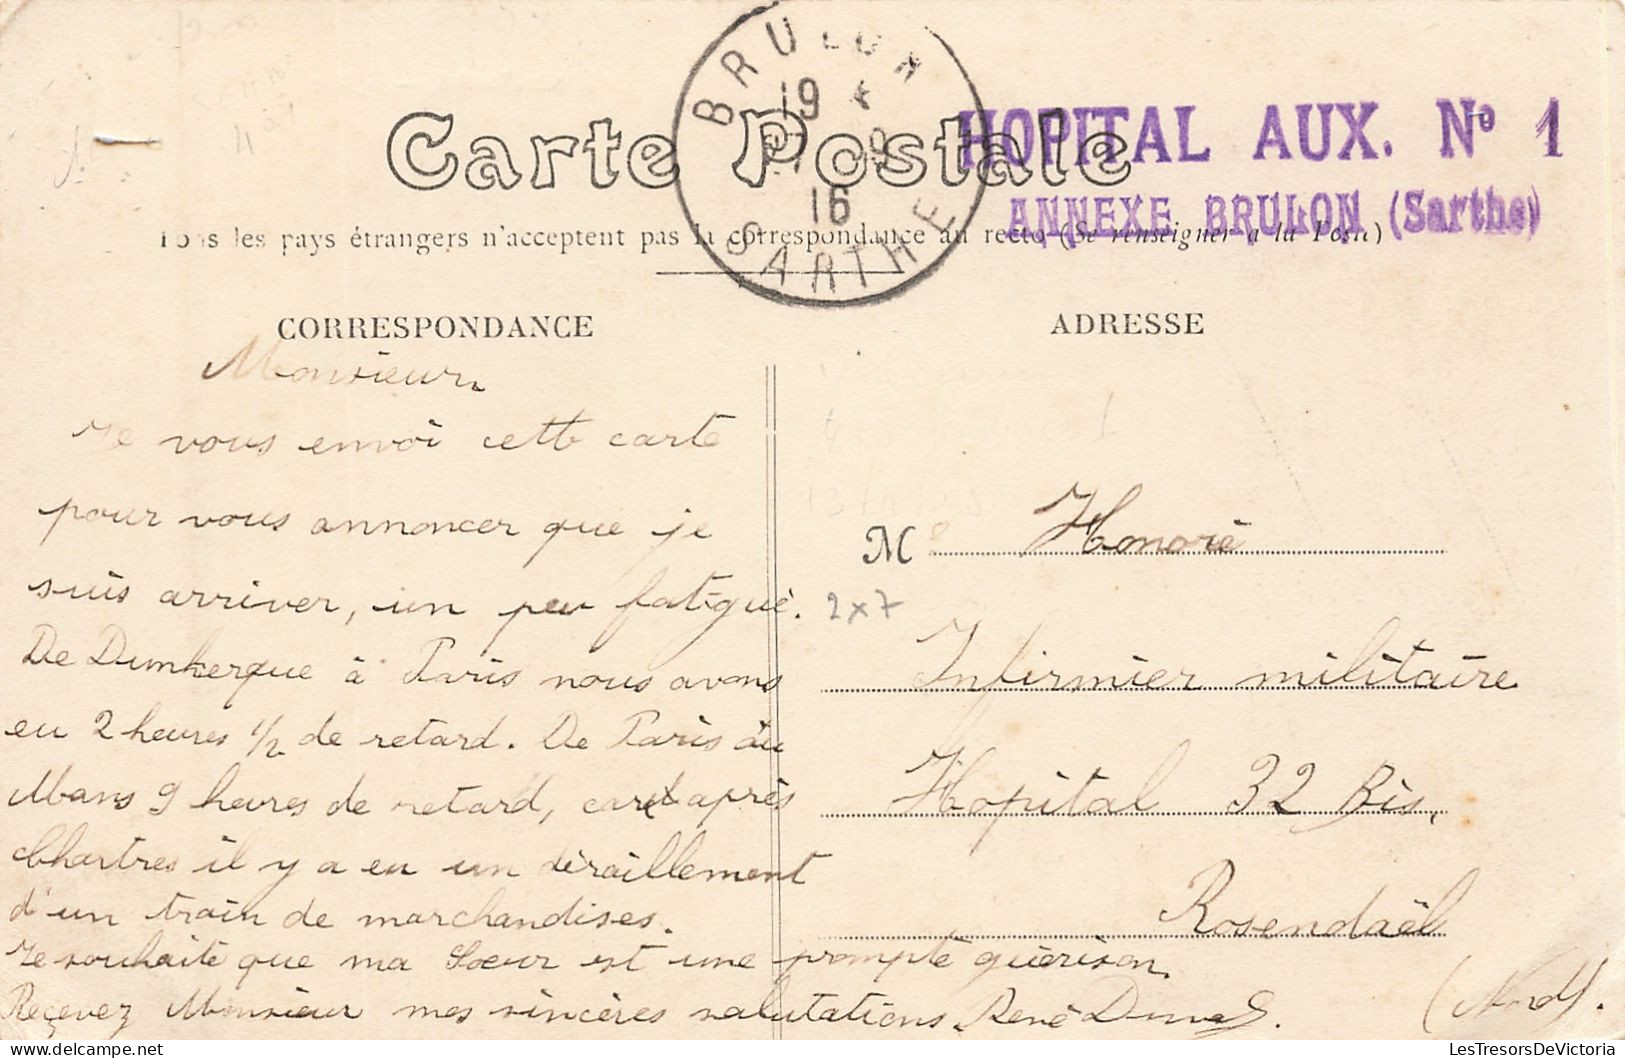 BRULON
19
16
SARTHE
Carte Postale
HOPITAL AUX. Nº 1
ANNEXE BRULON (Sarthe)
Tous les pays étrangers n'acceptent pas la correspondance au recto (Se renseigner à la Poste)
CORRESPONDANCE
Monsieur,
Je vous envoi cette carte
pour vous annoncer que je
suis arriver, un peu fatigué.
De Dunkerque à Paris nous avons
eu 2 heures 1/2 de retard. De Paris au
Mans 9 heures de retard, car après
Chartres il y a eu un déraillement
d'un train de marchandises.
Je souhaite que ma Sœur est une prompte guérison.
Reçevez Monsieur mes sincères salutations. René
ADRESSE
M Honoré
2x7
Infirmier militaire
Hopital 32 Bis,
Rosendaël
(Nord).
LesTresorsDeVictoria.com